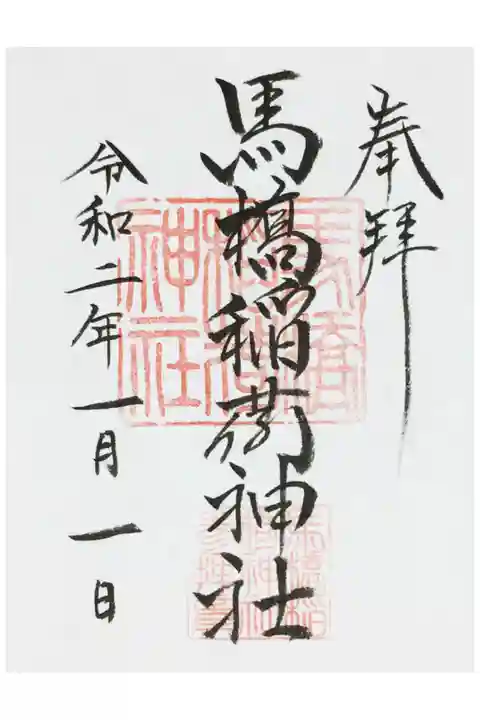 奉拝
馬橋稲荷神社
令和二年一月一日
馬橋
稲荷
神社